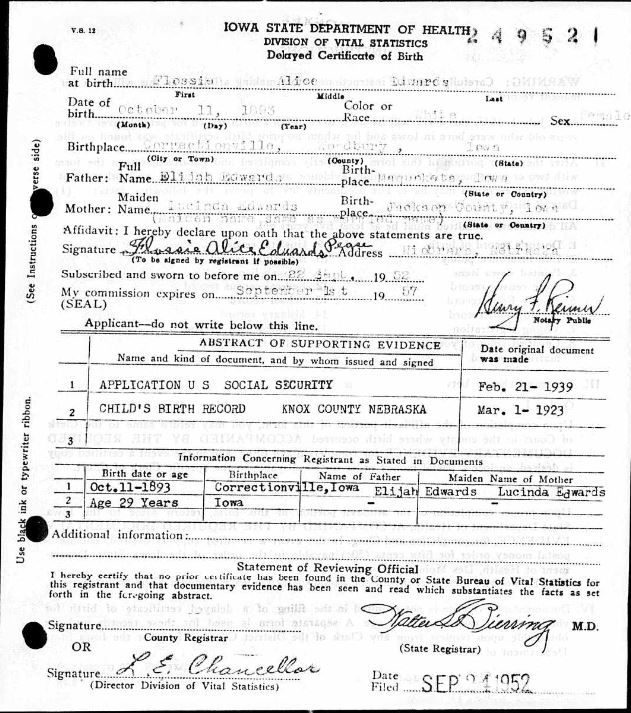 V.S. 12
IOWA STATE DEPARTMENT OF HEALTH 249521
DIVISION OF VITAL STATISTICS
Delayed Certificate of Birth
Full name
at birth Flossie Alice Edwards
First Middle Last
Date of birth October 11, 1893 Color or Race White Sex Female
(Month) (Day) (Year)
Birthplace Correctionville, Woodbury, Iowa
(City or Town) (County) (State)
Father: Full Name Elijah Edward Birthplace Maquoketa, Iowa
(State or Country)
Mother: Maiden Name Lucinda Edwards Birthplace Jackson County, Iowa
(Maiden name same as married name) (State or Country)
Affidavit: I hereby declare upon oath that the above statements are true.
Signature Flossie Alice Edwards Pease Address Niobrara, Nebraska
(To be signed by registrant if possible)
Subscribed and sworn to before me on 22 Sept. 1952
My commission expires on September 1st 1957
(SEAL)
Henry F. Reimer
Notary Public
Applicant—do not write below this line.
ABSTRACT OF SUPPORTING EVIDENCE
Name and kind of document, and by whom issued and signed
Date original document was made
1 APPLICATION U S SOCIAL SECURITY Feb. 21- 1939
2 CHILD'S BIRTH RECORD KNOX COUNTY NEBRASKA Mar. 1- 1923
3
Information Concerning Registrant as Stated in Documents
Birth date or age Birthplace Name of Father Maiden Name of Mother
1 Oct.11-1893 Correctionville,Iowa Elijah Edwards Lucinda Edwards
2 Age 29 Years Iowa - -
3
Additional information:
Statement of Reviewing Official
I hereby certify that no prior certificate has been found in the County or State Bureau of Vital Statistics for
this registrant and that documentary evidence has been seen and read which substantiates the facts as set
forth in the foregoing abstract.
Signature
County Registrar
Walter L. Bierring M.D.
(State Registrar)
OR
Signature L. E. Chancellor
(Director Division of Vital Statistics)
Date Filed SEP 24 1952
(See Instructions on reverse side)
Use black ink or typewriter ribbon.